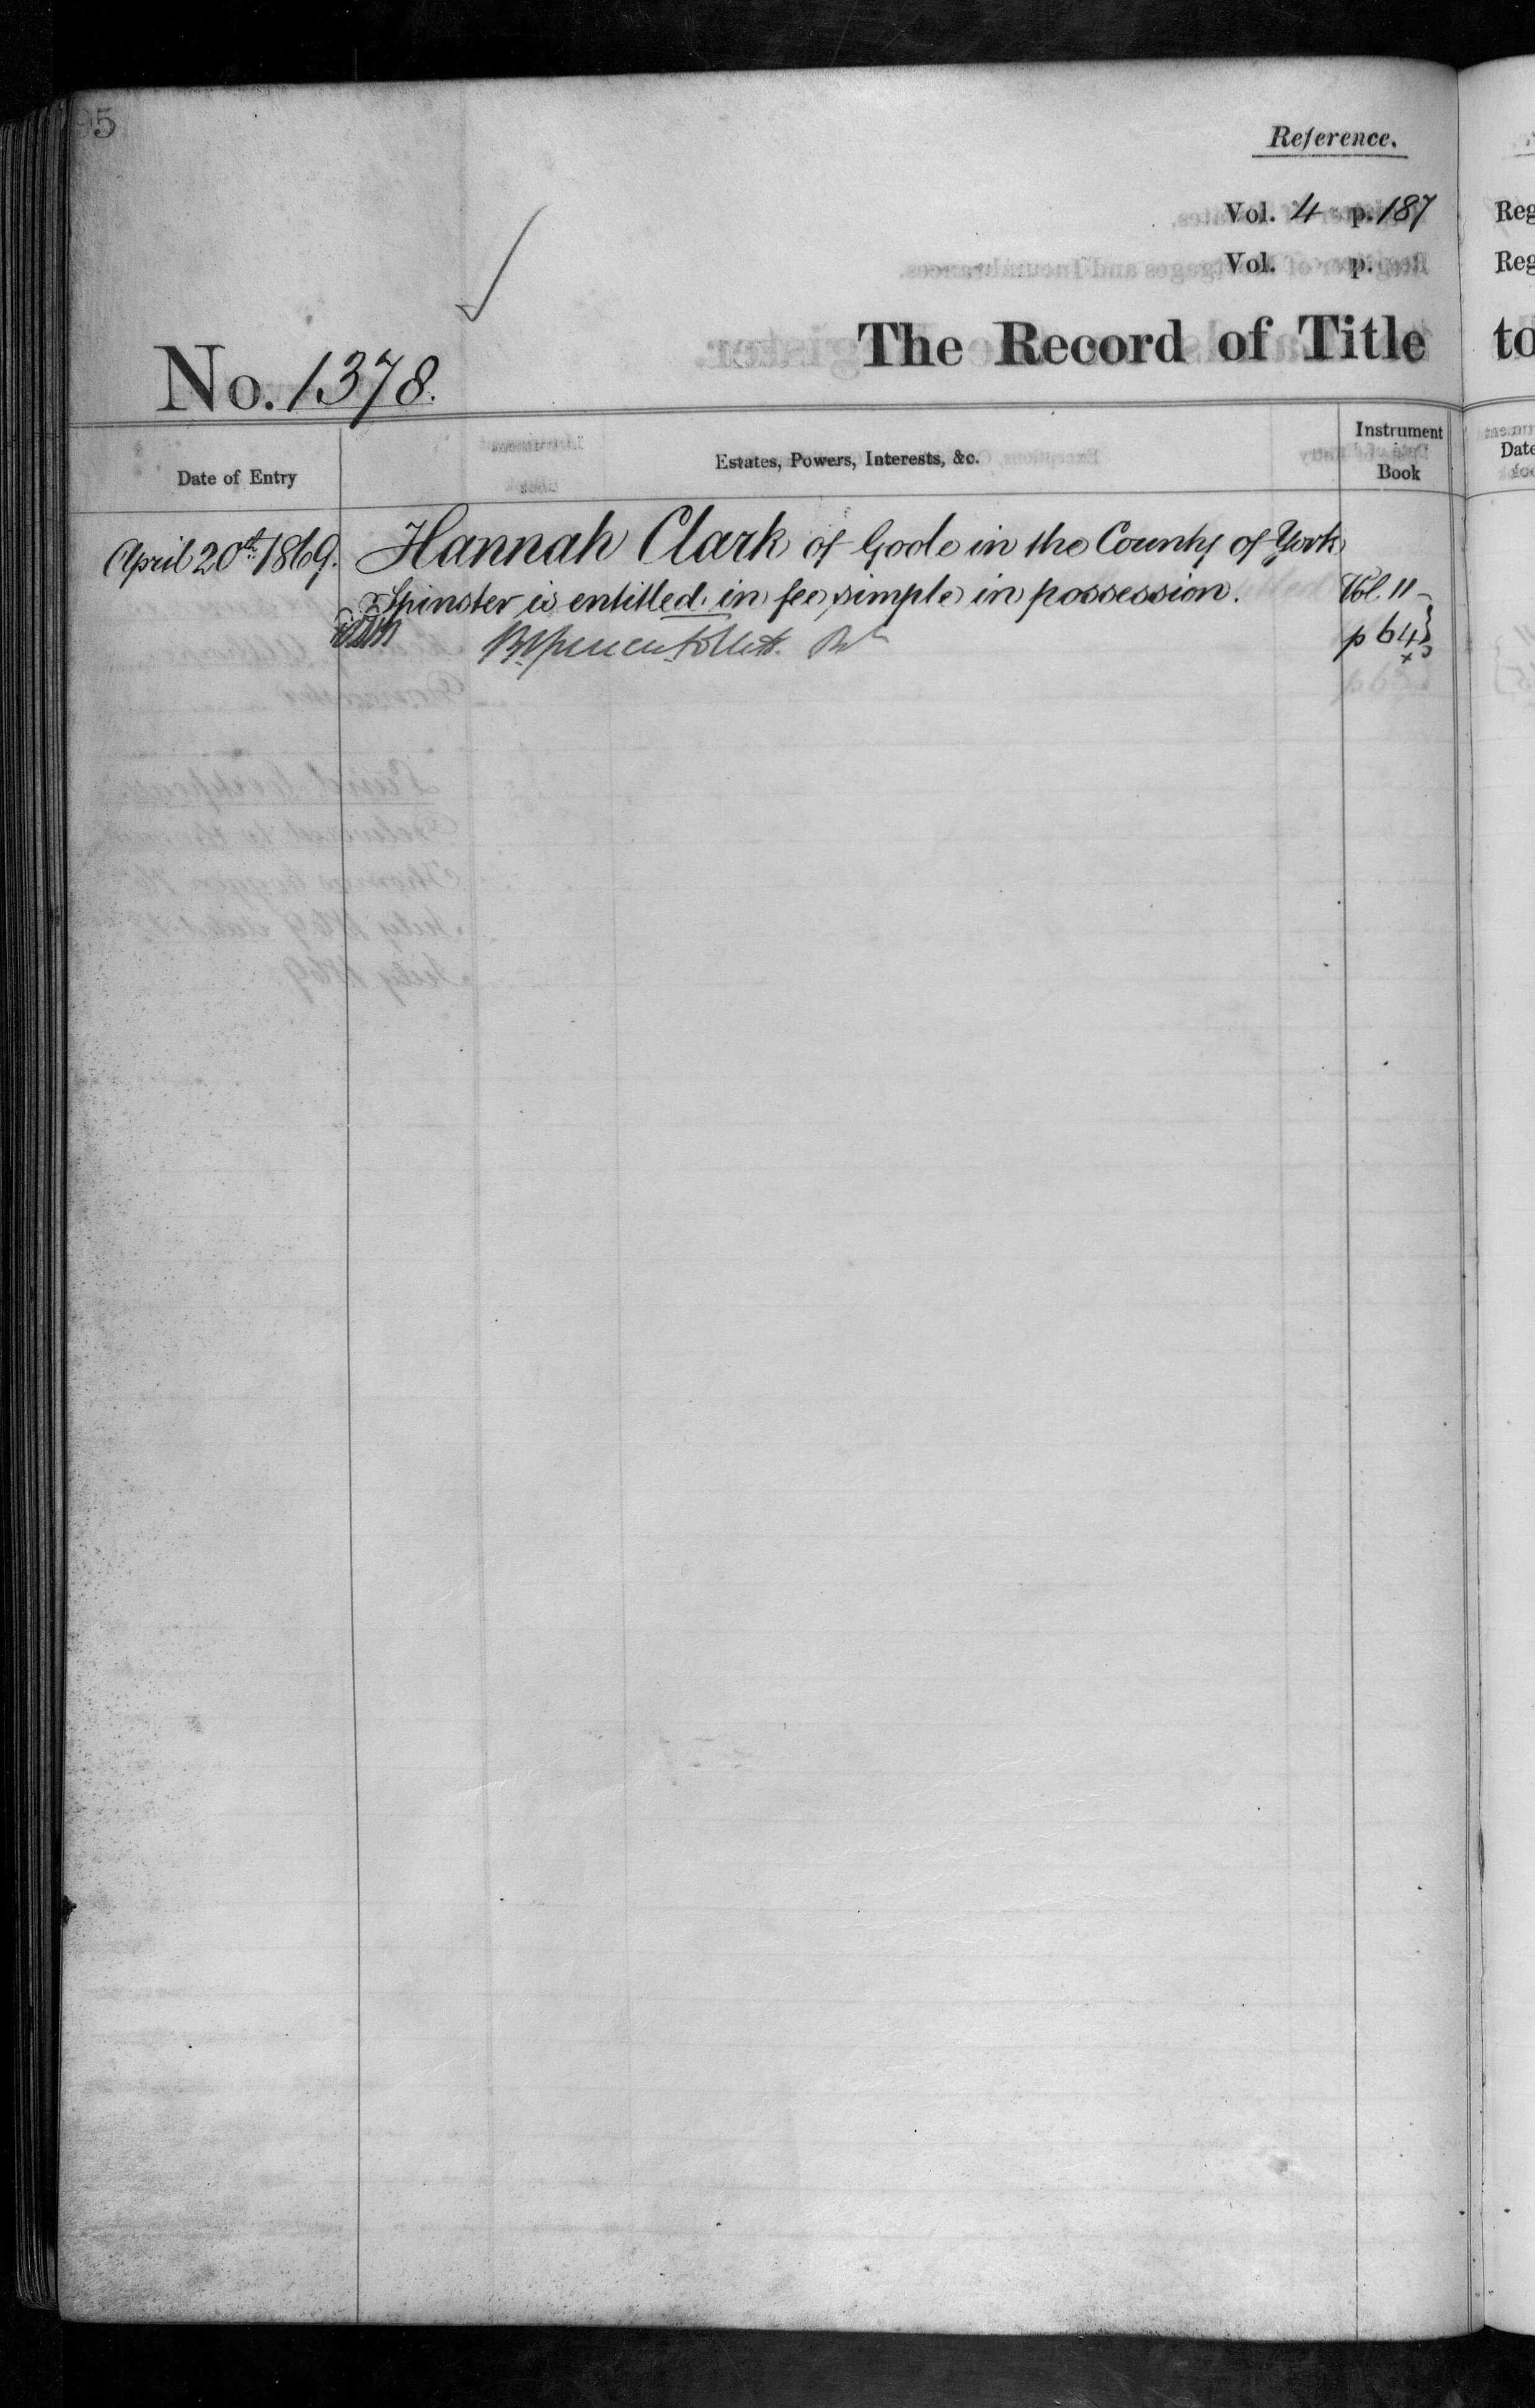 95
Reference.
Vol. 4 p. 187
Vol. p.
The Record of Title
No. 1378.
Date of Entry
Estates, Powers, Interests, &c.
Instrument
Book
April 20th 1869.
Hannah Clark of Goole in the County of York
Spinster is entitled in fee simple in possession.
Vol. 11
p 64
Reg
Reg
to
Date